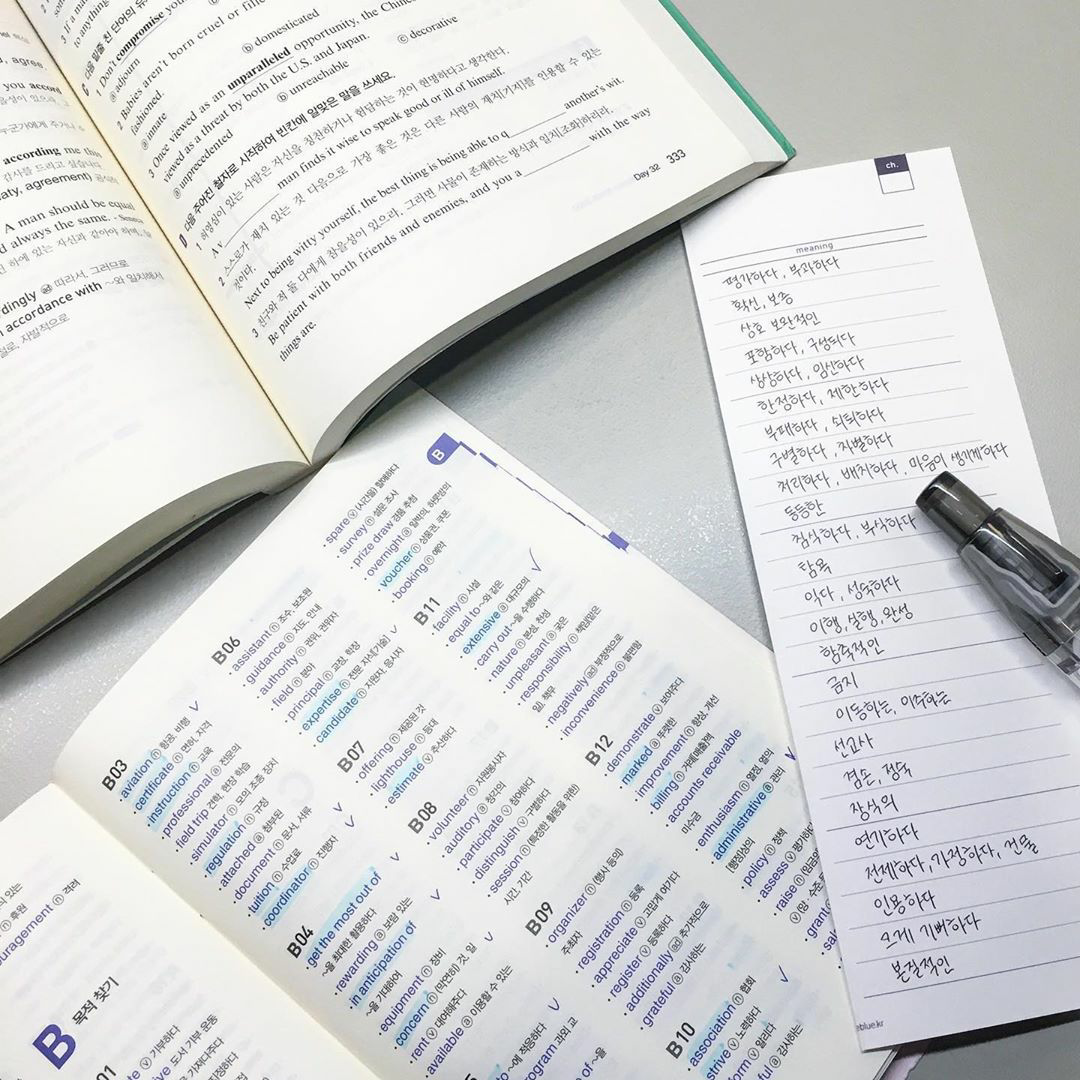 to anything
Don't compromise your
ⓐ adjourn ⓑ domesticated
2 Babies aren't born cruel or
fashioned.
ⓐ innate ⓒ decorative
3 Once viewed as an unparalleled opportunity, the
viewed as a threat by both the U.S. and Japan.
ⓐ unprecedented ⓑ unreachable
다음 주어진 철자로 시작하여 빈칸에 알맞은 말을 쓰세요.
1 분별심이 있는 사람은 자신을 칭찬하거나 험담하는 것이 현명하다고 생각한다.
A v man finds it wise to speak good or ill of himself.
2 스스로가 재치 있는 것 다음으로 가장 좋은 것은 다른 사람의 재치(기지)를 인용할 수 있는
것이다.
Next to being witty yourself, the best thing is being able to q another's wit.
3 친구와 적 둘 다에게 참을성이 있으라, 그러면 사물이 존재하는 방식과 일치(조화)하리라.
Be patient with both friends and enemies, and you a with the way
things are.
Day 32 333
agree
you accord
according me this
감사를 드리고 싶습니다.
aty, agreement)
A man should be equal
d always the same. - Seneca
rdingly ⓐd 따라서, 그러므로
accordance with ~와 일치해서
ch.
meaning
평가하다, 부과하다
확신, 보증
상호 보완적인
포함하다, 구성되다
상상하다, 임신하다
한정하다, 제한하다
부패하다, 쇠퇴하다
구별하다, 차별하다
처리하다, 배치하다, 마음이 생기게 하다
동등한
침식하다, 부식하다
탐욕
익다, 성숙하다
이행, 실행, 완성
함축적인
금지
이동하는, 이주하는
선교사
겸손, 정숙
장식의
연기하다
전제하다, 가정하다, 건물
인용하다
크게 기뻐하다
본질적인
eblue.kr
B
B 목적 찾기
uragement ⓝ 격려
B03
aviation ⓝ 항공, 비행
certificate ⓝ 면허, 자격
instruction ⓝ 교육
professional ⓐ 전문의
field trip 견학, 현장 학습
simulator ⓝ 모의 조종 장치
regulation ⓝ 규정
attached ⓐ 첨부된
document ⓝ 문서, 서류
tuition ⓝ 수업료
coordinator ⓝ 진행자
B04
get the most out of
~을 최대한 활용하다
rewarding ⓐ 보람 있는
in anticipation of
~을 기대하여
equipment ⓝ 장비
concern ⓝ (막연한) 것, 일
rent ⓥ 대여해주다
available ⓐ 이용할 수 있는
B06
assistant ⓝ 조수, 보조원
guidance ⓝ 지도, 안내
authority ⓝ 권위, 권위자
field ⓝ 분야
principal ⓝ 교장, 학장
expertise ⓝ 전문 지식[기술]
candidate ⓝ 지원자, 응시자
B07
offering ⓝ 제공된 것
lighthouse ⓝ 등대
estimate ⓥ 추산하다
B08
volunteer ⓝ 자원봉사자
auditory ⓐ 청각의
participate ⓥ 참여하다
distinguish ⓥ 구별하다
session ⓝ (특정한 활동을 위한)
시간, 기간
B09
organizer ⓝ (행사 등의)
주최자
registration ⓝ 등록
appreciate ⓥ 고맙게 여기다
register ⓥ 등록하다
additionally ⓐd 추가적으로
grateful ⓐ 감사하는
B10
association ⓝ 협회
strive ⓥ 노력하다
form ⓥ 알리다
ful ⓐ 감사하는
spare ⓥ (시간을) 할애하다
survey ⓝ 설문 조사
prize draw 경품 추첨
overnight ⓐ 일박의, 하룻밤의
voucher ⓝ 상품권, 쿠폰
booking ⓝ 예약
B11
facility ⓝ 시설
equal to ~와 같은
extensive ⓐ 대규모의
carry out ~을 수행하다
nature ⓝ 본성, 천성
unpleasant ⓐ 궂은
responsibility ⓝ 책임맡은
일, 책무
negatively ⓐd 부정적으로
inconvenience ⓝ 불편함
B12
demonstrate ⓥ 보여주다
marked ⓐ 뚜렷한
improvement ⓝ 향상, 개선
billing ⓝ 거래[매출]액
accounts receivable
미수금
enthusiasm ⓝ 열정, 열의
administrative ⓐ 관리
[행정]상의
policy ⓝ 정책
assess ⓥ 평가하다
raise ⓝ
grant